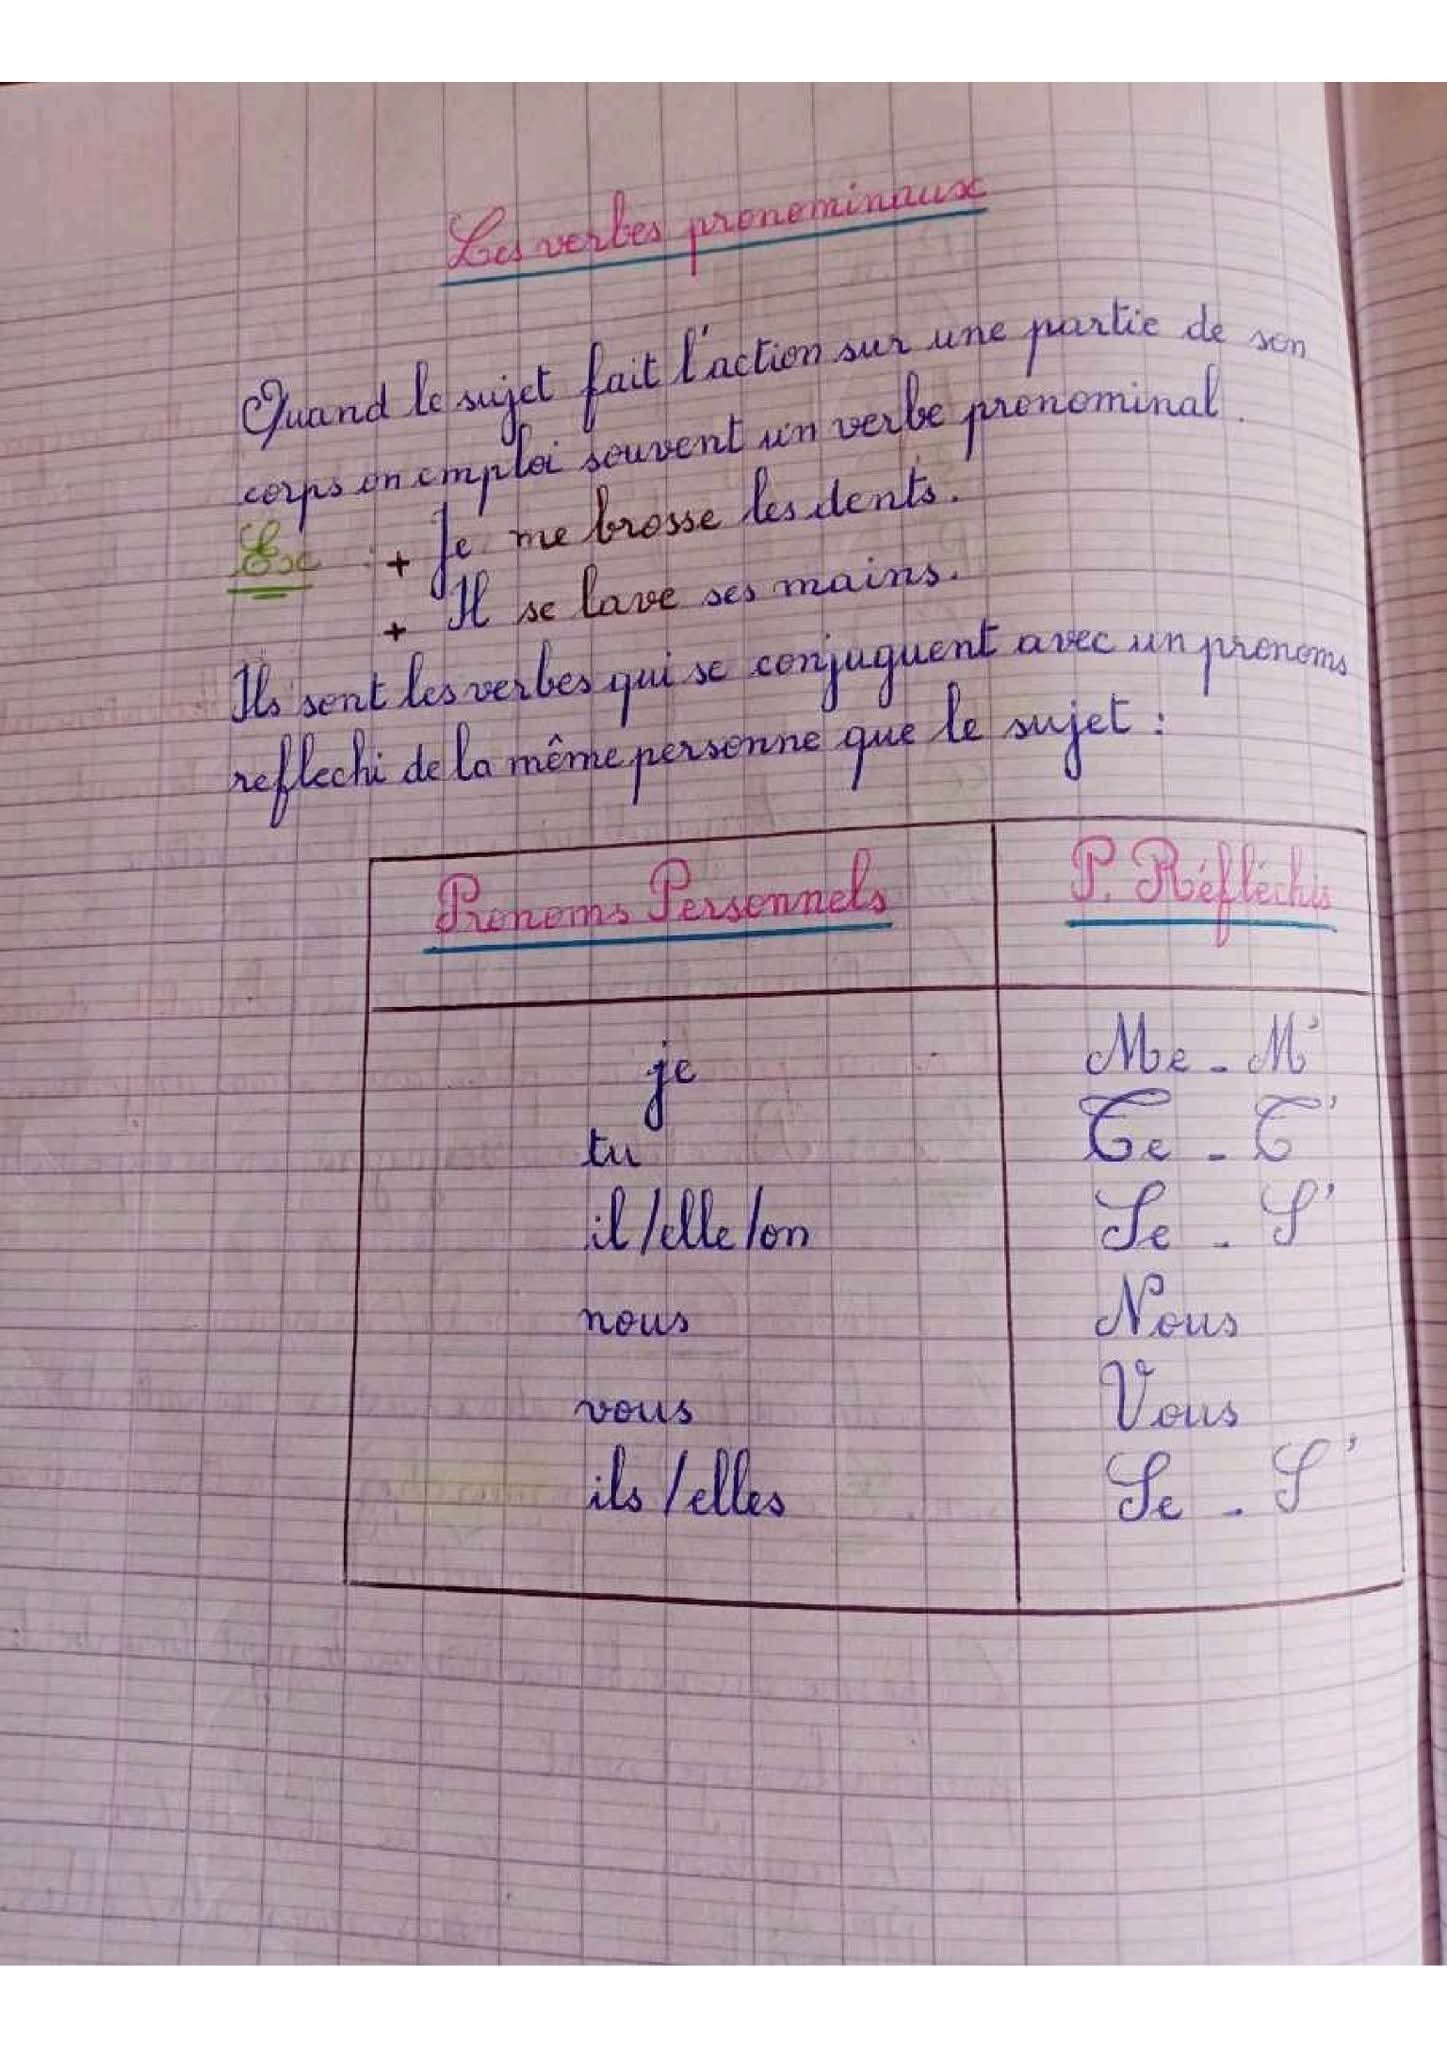 Les verbes pronominaux
Quand le sujet fait l'action sur une partie de son
corps on emploi souvent un verbe pronominal.
Ex : + Je me brosse les dents.
+ Il se lave ses mains.
Ils sont les verbes qui se conjuguent avec un pronoms
reflechi de la même personne que le sujet :
Pronoms Personnels P. Réfléchis
je Me - M'
tu Te - T'
il/elle/on Se - S'
nous Nous
vous Vous
ils/elles Se - S'